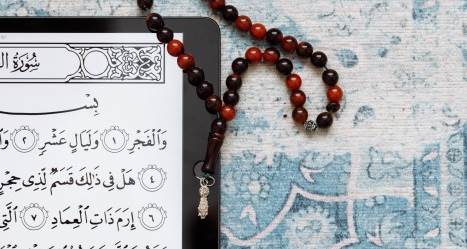 سُورَةُ ال
بِسْ
وَٱلْفَجْرِ ١ وَلَيَالٍ عَشْرٍ ٢ وَٱ
٤ هَلْ فِي ذَٰلِكَ قَسَمٌ لِّذِي حِجْرٍ
٦ إِرَمَ ذَاتِ ٱلْعِمَادِ ٧ ٱلَّتِي